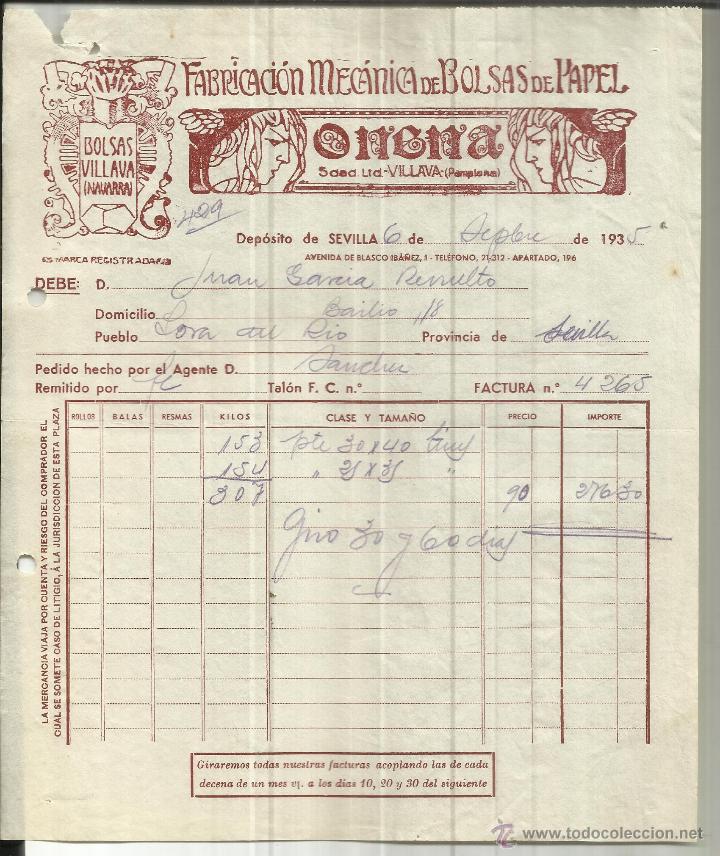 FABRICACIÓN MECÁNICA DE BOLSAS DE PAPEL
BOLSAS
VILLAVA
(NAVARRA)
ONENA
Sdad. Ltd.-VILLAVA-(Pamplona)
429
ES MARCA REGISTRADA
Depósito de SEVILLA 6 de Sepbre de 1935
AVENIDA DE BLASCO IBÁÑEZ, 1 - TELÉFONO, 21-312 - APARTADO, 196
DEBE: D. Juan Garcia
Domicilio Bailio 118
Pueblo Lora del Rio Provincia de Sevilla
Pedido hecho por el Agente D. Sanchez
Remitido por fc Talón F. C. n.º FACTURA n.º 4265
ROLLOS BALAS RESMAS KILOS CLASE Y TAMAÑO PRECIO IMPORTE
153 pte 30 x 40
154 " 25 x 35 "
307 90 276 30
Giro 30 y 60 dias
LA MERCANCIA VIAJA POR CUENTA Y RIESGO DEL COMPRADOR EL
CUAL SE SOMETE CASO DE LITIGIO, Á LA JURISDICCION DE ESTA PLAZA
Giraremos todas nuestras facturas acoplando las de cada
decena de un mes v. a los dias 10, 20 y 30 del siguiente
todocoleccion
www.todocoleccion.net